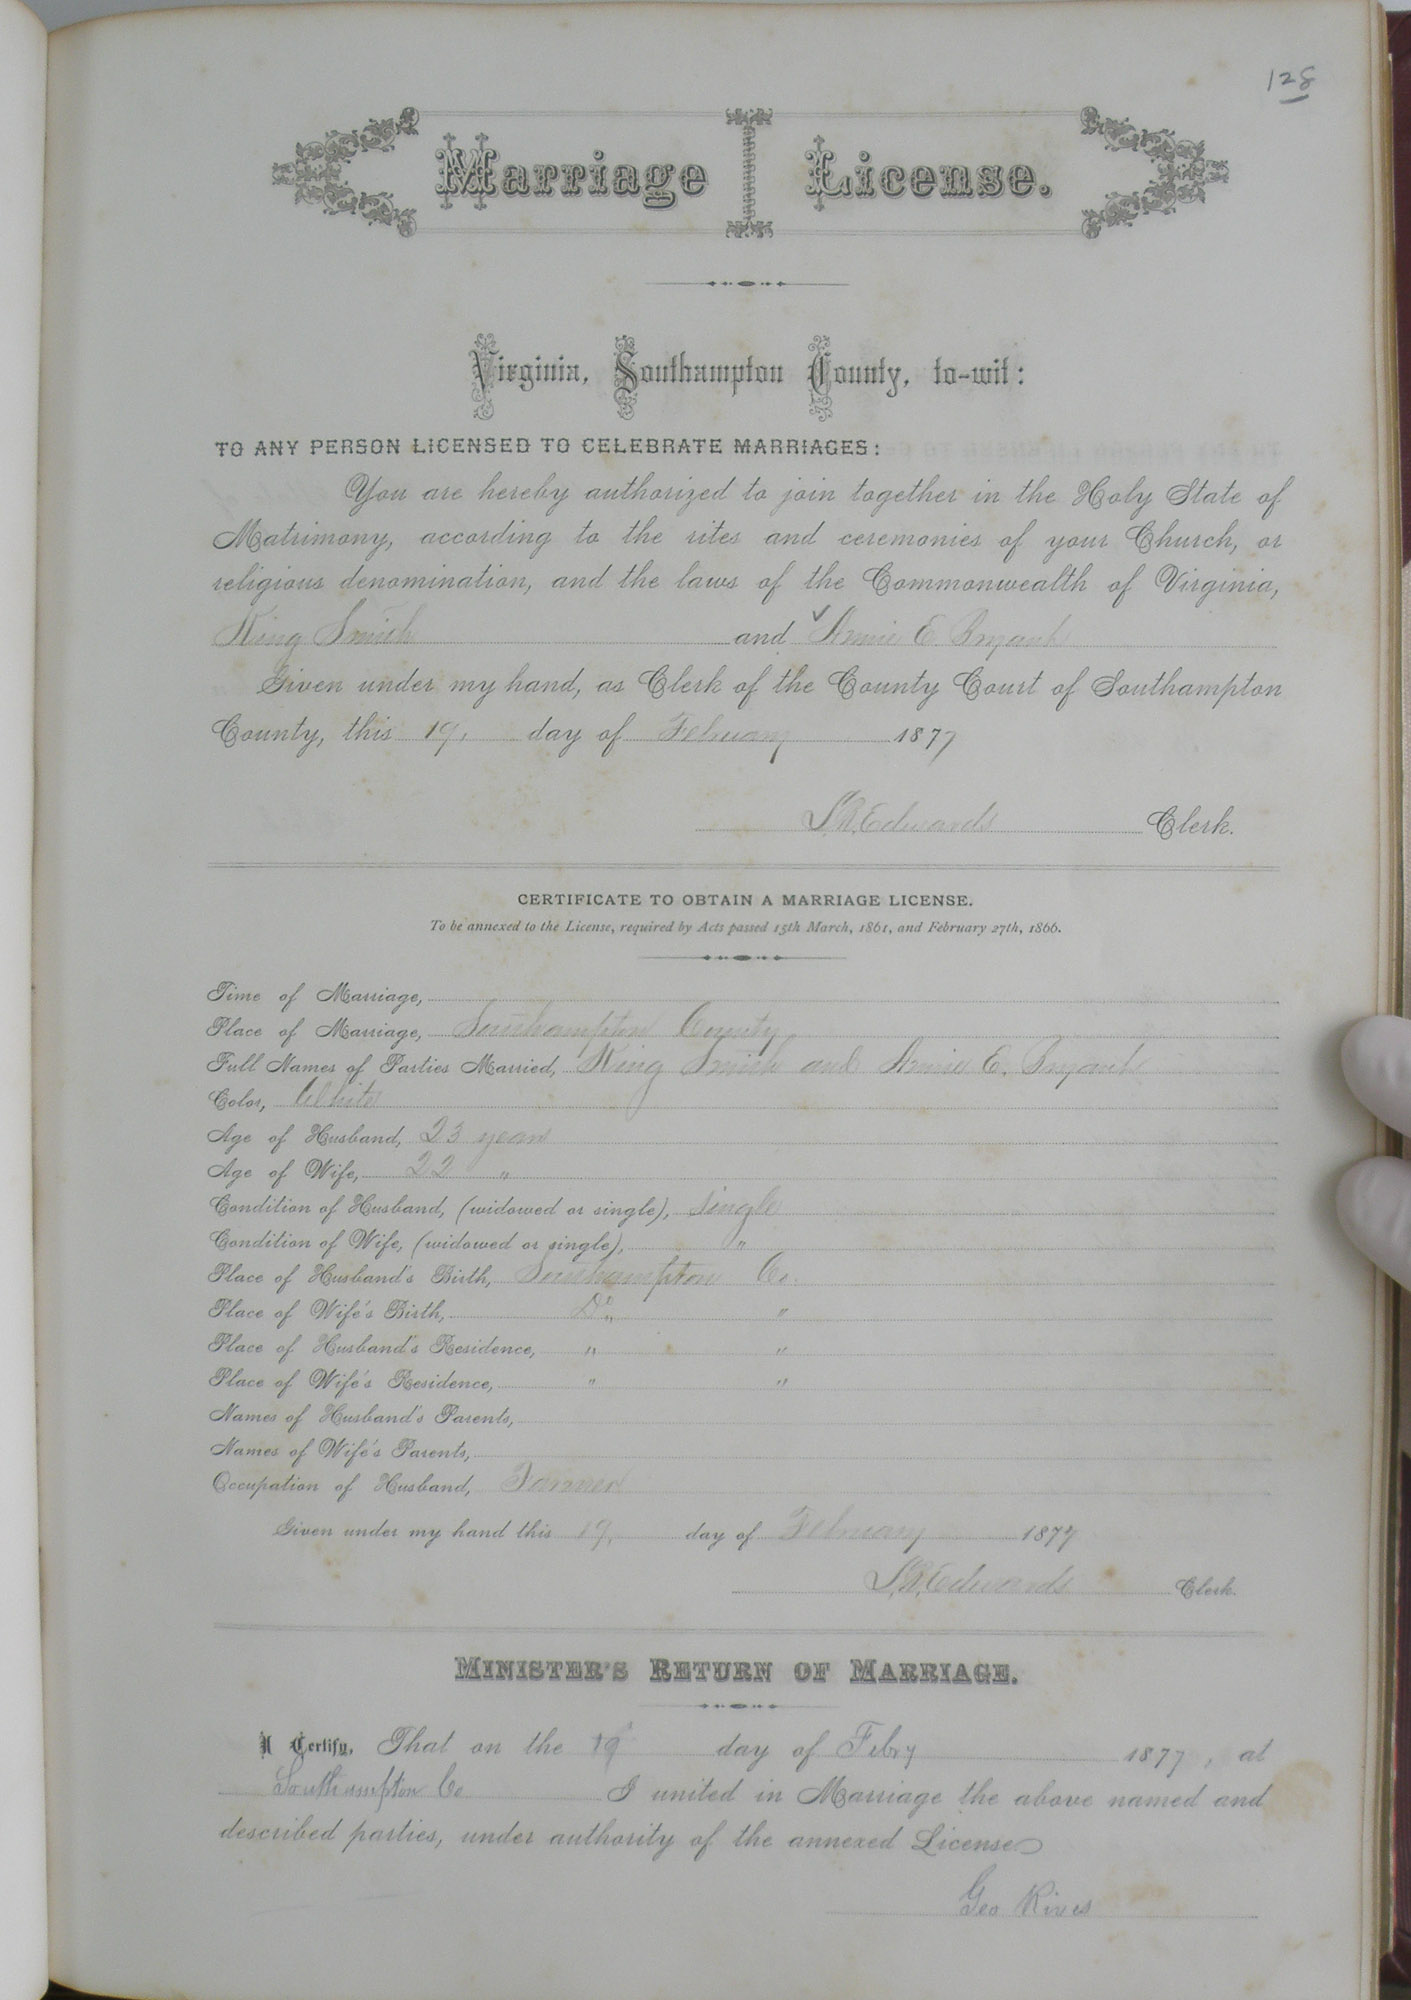 128
Marriage License.
Virginia, Southampton County, to-wit:
TO ANY PERSON LICENSED TO CELEBRATE MARRIAGES:
You are hereby authorized to join together in the Holy State of
Matrimony, according to the rites and ceremonies of your Church, or
religious denomination, and the laws of the Commonwealth of Virginia,
King Smith and Annie E. Bryant
Given under my hand, as Clerk of the County Court of Southampton
County, this 19, day of February 1877
L.R. Edwards Clerk.
CERTIFICATE TO OBTAIN A MARRIAGE LICENSE.
To be annexed to the License, required by Acts passed 15th March, 1861, and February 27th, 1866.
Time of Marriage,
Place of Marriage, Southampton County
Full Names of Parties Married, King Smith and Annie E. Bryant
Color, White
Age of Husband, 23 years
Age of Wife, 22 "
Condition of Husband, (widowed or single), single
Condition of Wife, (widowed or single), "
Place of Husband's Birth, Southampton Co.
Place of Wife's Birth, Do " "
Place of Husband's Residence, " "
Place of Wife's Residence, " "
Names of Husband's Parents,
Names of Wife's Parents,
Occupation of Husband, Farmer
Given under my hand this 19, day of February 1877
L.R. Edwards Clerk.
MINISTER'S RETURN OF MARRIAGE.
I Certify, That on the 19 day of Febry 1877, at
Southampton Co I united in Marriage the above named and
described parties, under authority of the annexed License
Geo Rives